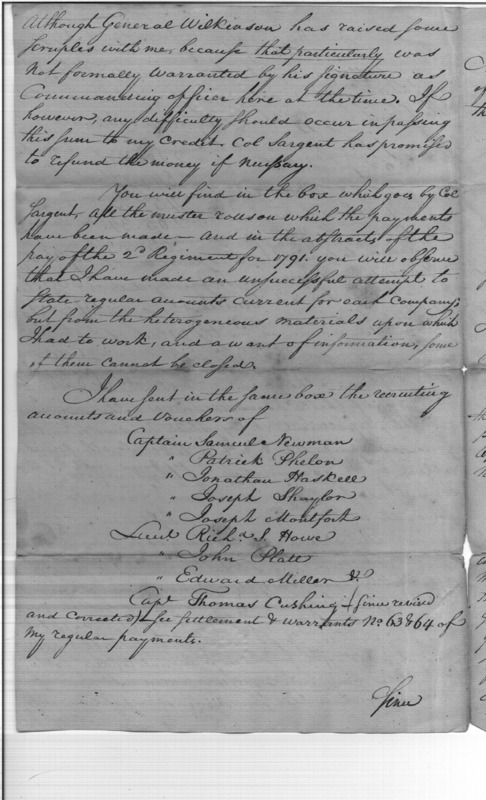 although General Wilkinson has raised some
scruples with me, because that particularly was
not formally warranted by his signature as
Commanding officer here at the time. If
however, any difficulty should occur in passing
this sum to my credit, Col Sargent has promised
to refund the money if necessary.
You will find in the box which goes by Col
Sargent, all the muster rolls on which the payments
have been made — and in the abstracts of the
pay of the 2d Regiment for 1791. you will observe
that I have made an unsuccessful attempt to
state regular accounts current for each Company;
but from the heterogeneous materials upon which
I had to work, and a want of information, some
of them cannot be closed.
I have sent in the same box the recruiting
accounts and vouchers of
Captain Samuel Newman
" Patrick Phelon
" Jonathan Haskell
" Joseph Shaylor
" Joseph Montfort
Lieut Richd. S. Howe
" John Platt
" Edward Miller &
Capt Thomas Cushing (since revised
and corrected) see settlement & warrants No. 63 & 64 of
my regular payments.
Since